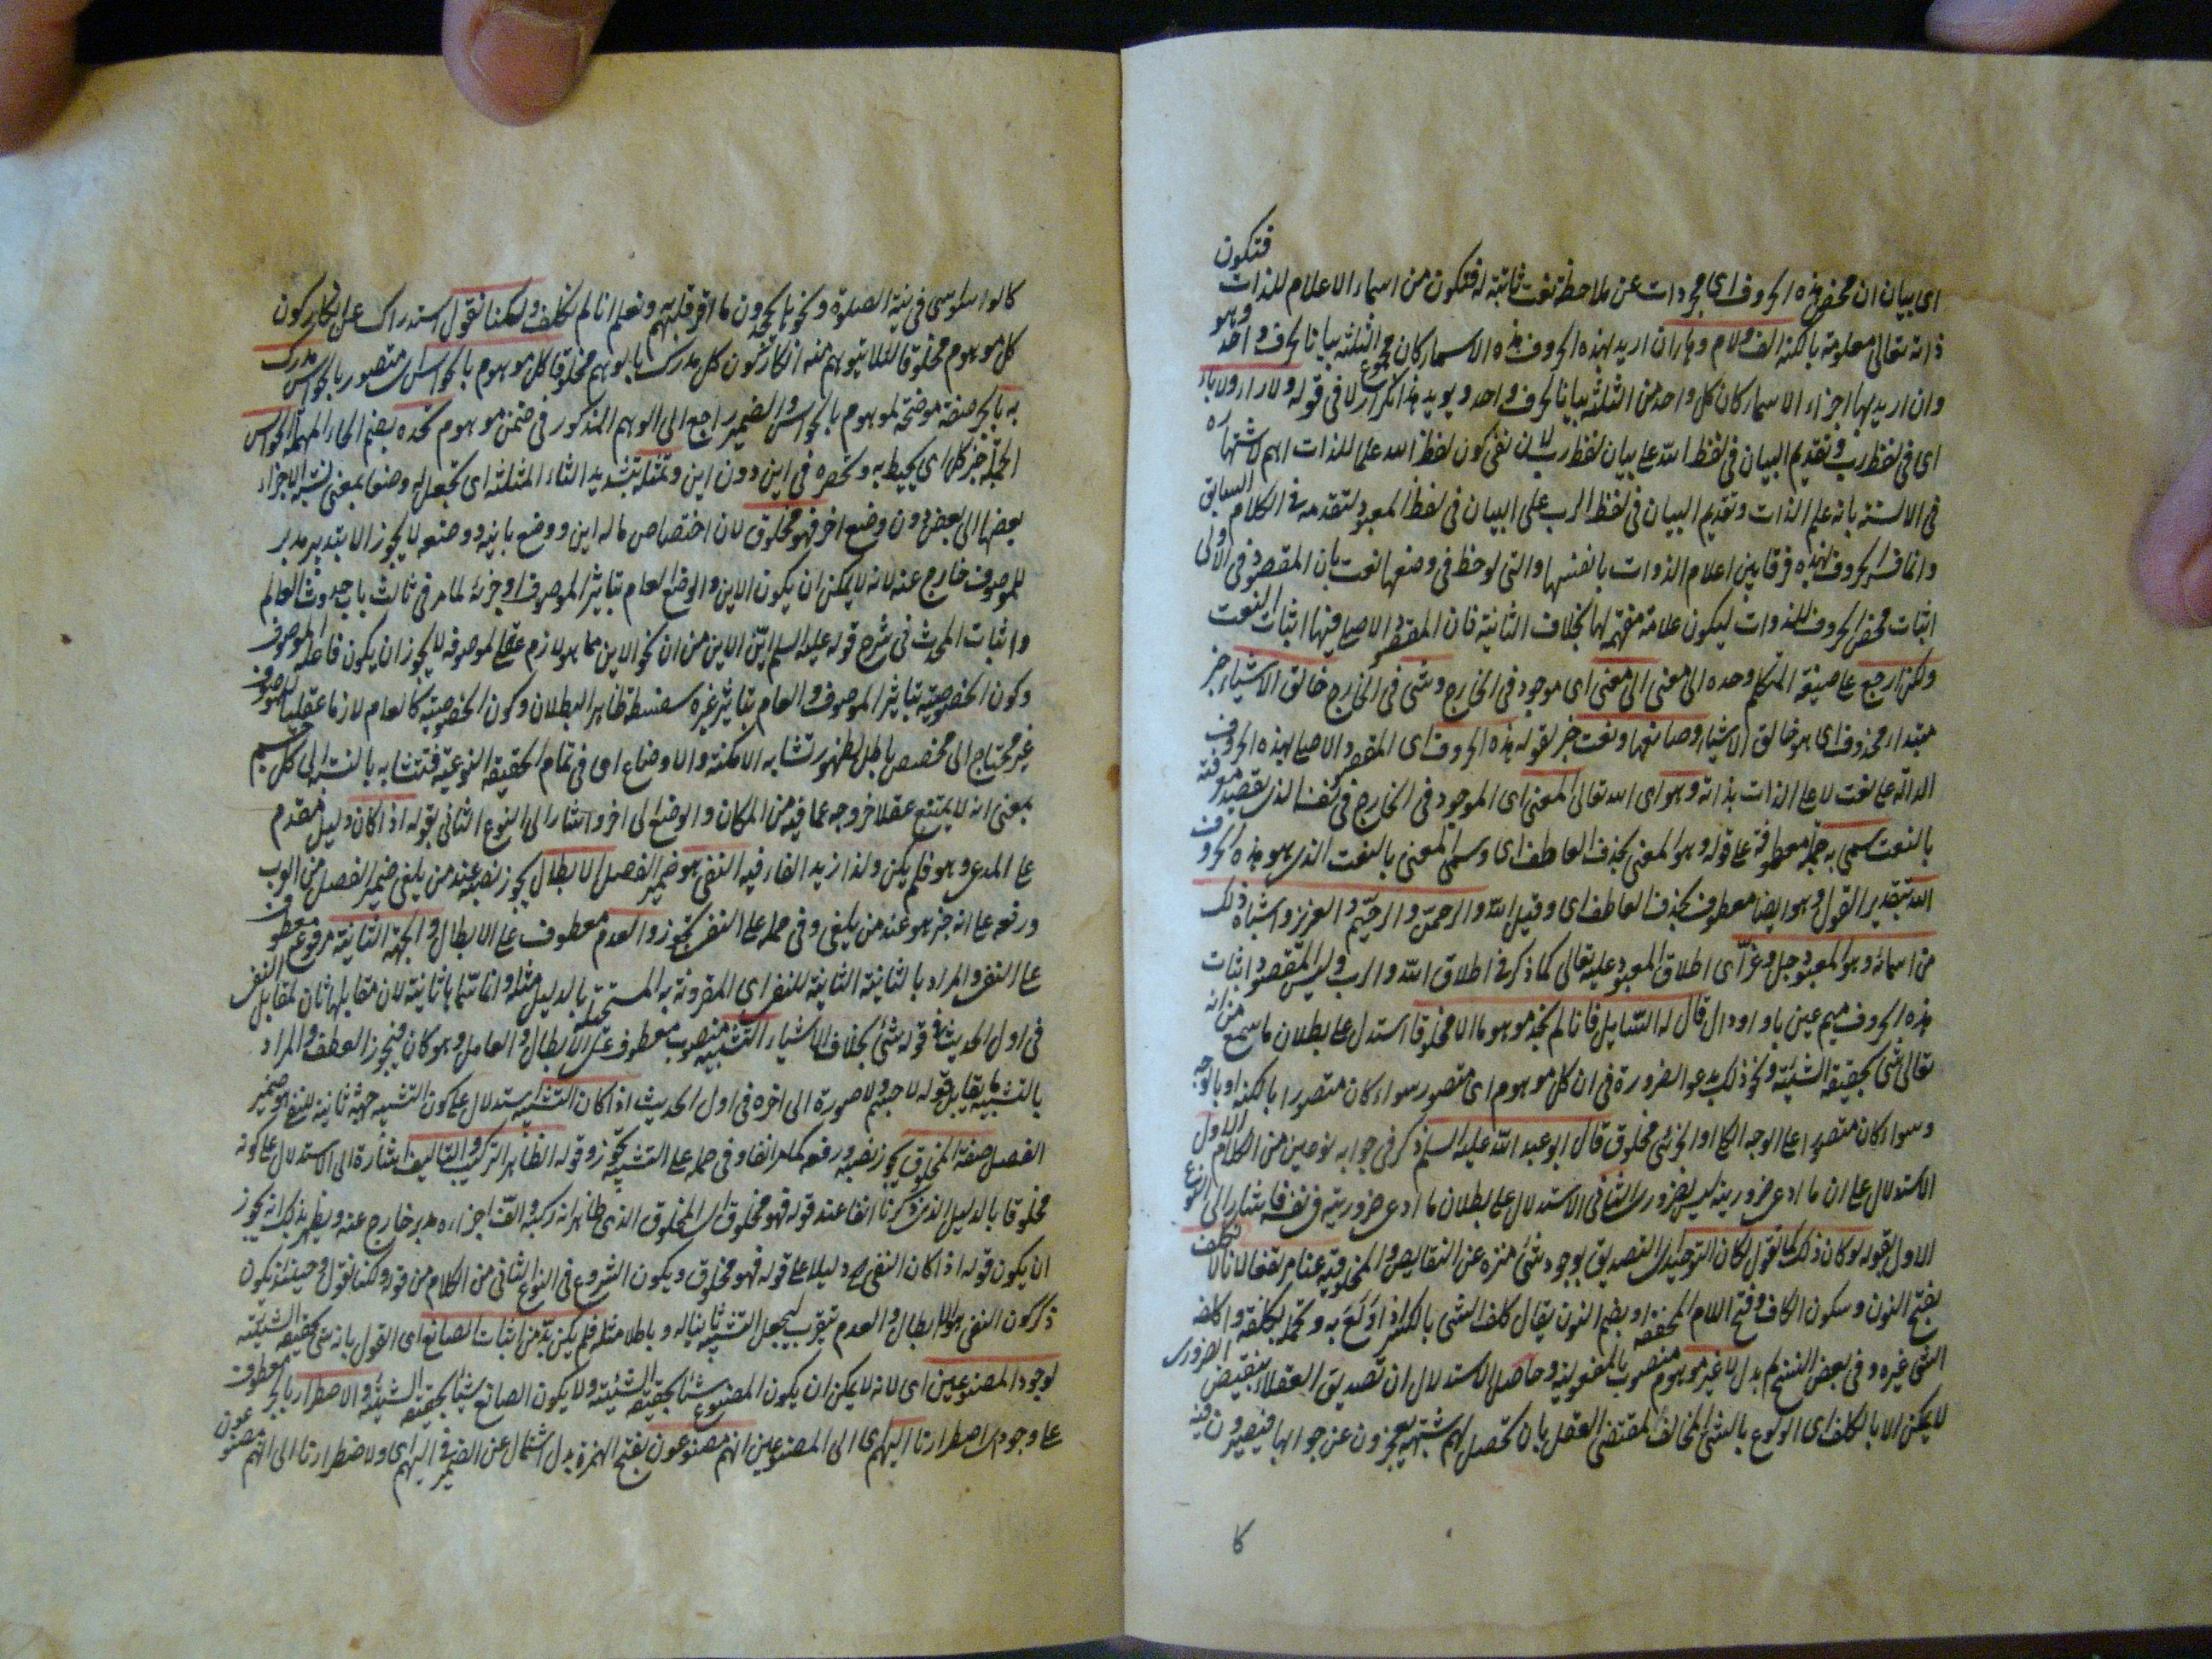 فتكون
اى بيان ان محض هذه الحروف اى مجردات عن ملاحظة نعت ثابتة له فتكون من اسماء الاعلام للذات
ذاته تعالى معلومة بالكنه الف ولام وهاء ان اريد بهذه الحروف هذه الاسماء كان مجموع الثلثة بيانا لحرف واحد وهو
وان اريد بها اجزاء الاسماء كان كل واحد من الثلثة بيانا لحرف واحد ويويد هذا تكرار لا فى قوله ولا راء ولا باء
اى فى لفظ رب وتقديم البيان فى لفظ الله على بيان لفظ رب لان نفى كون لفظ الله علما للذات اهم لاشتهاره
فى الالسنة بانه علم الذات وتقديم البيان فى لفظ الرب على البيان فى لفظ المعبود لتقدمه فى الكلام السابق
وانما الحروف بهذه فرقا بين اعلام الذوات بانفسها والتى لوحظ فى وضعها نعت بان المقصود فى الاولى
اثبات محض الحروف للذوات ليكون علامة مفهمة لها بخلاف الثانية فان المقصود الاصلى فيها اثبات النعت
ولكن ارجع على صيغة المتكلم وحده الى معنى اى معنى اى موجود فى الخارج وشئ فى الخارج خالق الاشياء خبر
مبتدا محذوف اى هو خالق الاشياء وصانعها ونعت خبر لقوله هذه الحروف اى المقصود الاصلى بهذه الحروف
الدالة على نعت لا على الذات بذاته وهو اى الله تعالى المعنى اى الموجود فى الخارج فى نفسه الذى يقصد معرفته
بالنعت سمى به جملة معطوفة على قوله وهو المعنى بحذف العاطف اى وسمى المعنى بالنعت الذى هو هذه الحروف
الله بتقدير القول وهو ايضا معطوف بحذف العاطف اى وقيل الله والرحمن والرحيم والعزيز واشباه ذلك
من اسمائه وهو المعبود جل وعز اى اطلاق المعبود عليه تعالى كما ذكر فى اطلاق الله والرب وليس المقصود اثبات
هذه الحروف ميم عين باء واو دال قال له السائل فانا لم نجد موهوما الا مخلوقا استدل على بطلان ما سمع من انه
تعالى شئ بحقيقة الشيئية ونحو ذلك بدعوى الضرورة فى ان كل موهوم اى متصور سواء كان متصورا بالكنه او بالوجه
وسواء كان متصورا على الوجه الكلى او الجزئى مخلوق قال ابو عبد الله عليه السلم ذكر فى جوابه نوعين من الكلام الاول
الاستدلال على ان ما ادعى ضروريته ليس بضرورى الثانى الاستدلال على بطلان ما ادعى ضروريته فى نفسه فاشار الى النوع
الاول بقوله لو كان ذلك كما تقول لكان التوحيد اى التصديق بوجود شئ منزه عن النقايص والمخلوقية عنا مرتفعا لانا لا نكلف
بفتح النون وسكون الكاف وفتح اللام المخففة او بضم النون يقال كلف الشئ بالكسر اذا اولع به وتحمله بكلفة واكلفه
الشئ غيره وفى بعض النسخ لم بدل لا غير موهوم منصوب بالمفعولية وحاصل الاستدلال ان تصديق العقلاء بنقيض الضرورى
لا يمكن الا بالكلف اى الولوع بالشئ المخالف لمقتضى العقل بان تحصل لهم شبهة يعجزون عن جوابها فيصيرون فيه
كا
كالواسوسى فى نية الصلوة ونحوها يجحدون ما اقر قلبهم ونعلم انا لم نكلف ولكنا نقول استدراك على انكار كون
كل موهوم مخلوقا لئلا يتوهم منه انكار كون كل مدرك بالوهم مخلوقا كل موهوم بالحواس متصور بالحواس مدرك
به بالجر صفة موضحة لموهوم بالحواس والضمير راجع الى الوهم المذكور فى ضمن موهوم تحده بضم الحاء المهملة الحواس
الجملة خبر كل اى يحيط به وتحصره فى اين دون اين وتمثله بتشديد الثاء المثلثة اى تجعل له وضعا بمعنى نسبة الاجزاء
بعضها الى بعض دون وضع اخر فهو مخلوق لان اختصاص ما له اين ووضع باينه ووضعه لا يجوز الا بتدبير مدبر
للموصوف خارج عنه لانه لا يمكن ان يكون الاين والوضع العام بتاثير الموصوف او جزئه لما مر فى ثالث باب حدوث العالم
واثبات المحدث فى شرح قوله عليه السلم اين الاين من ان نحو الاين مما هو لازم عقلى لموصوفه لا يجوز ان يكون فاعله الموصوف
وكون الخصوصية بتاثير الموصوف والعام بتاثير غيره سفسطة ظاهر البطلان وكون الخصوصية كالعام لازما عقليا للموصوف
غير محتاج الى مخصص باطل لظهور تشابه الامكنة والاوضاع اى فى تمام الحقيقة النوعية فتتشابه بالنسبة الى كل جسم
بمعنى انه لا يمتنع عقلا خروجه عما فيه من المكان والوضع الى اخر واشار الى النوع الثانى بقوله اذ كان دليل مقدم
على المدعى وهو فلم يكن ولذا زيد الفاء فيه النفى هو ضمير الفصل الابطال يجوز نصبه عند من يلغى ضمير الفصل من العرب
ورفعه على انه خبر هو عند من لا يلغى وفى حمله على النفى تجوز والعدم معطوف على الابطال والجهة الثانية مرفوع معطوف
على النفى والمراد بالثانية الثانية للنفى اى المقرونة به المستحيلة بالدليل مثله وانما سماها ثانية لان مقابلها ثان لمقابل النفى
فى اول الحديث فى قوله شئ بخلاف الاشياء التشبيه منصوب معطوف على الابطال والعامل وهو كان فيجوز العطف والمراد
بالتشبيه ما يقابل قوله لا جسم ولا صورة الى اخره فى اول الحديث اذ كان التشبيه استدلال على كون التشبيه جهة ثانية للنفى هو ضمير
الفصل صفة المخلوق يجوز نصبه ورفعه كما مر انفا وفى حمله على التشبيه تجوز وقوله الظاهر التركيب والتاليف اشارة الى الاستدلال على كونه
مخلوقا بالدليل الذى ذكرنا انفا عند قوله فهو مخلوق اى المخلوق الذى ظاهر انه ركبه والف اجزاءه مدبر خارج عنه ويظهر بذلك انه يجوز
ان يكون قوله اذ كان النفى دليلا على قوله فهو مخلوق ويكون الشروع فى النوع الثانى من الكلام من قوله ولكنا نقول وحينئذ يكون
ذكر كون النفى هو الابطال والعدم بتقريب ليجعل التشبيه ثانيا له وباطلا مثله فلم يكن بد من اثبات الصانع اى القول بانه شئ بحقيقة الشيئية
لوجود المصنوعين اى لانه لا يمكن ان يكون المصنوع شيئا بحقيقة الشيئية ولا يكون الصانع شيئا بحقيقة الشيئية والاضطرار بالجر معطوف
على وجود اى اضطرارنا اليهم اى الى المصنوعين انهم مصنوعون بفتح الهمزة بدل اشتمال عن الضمير فى اليهم اى ولاضطرارنا الى انهم مصنوعون